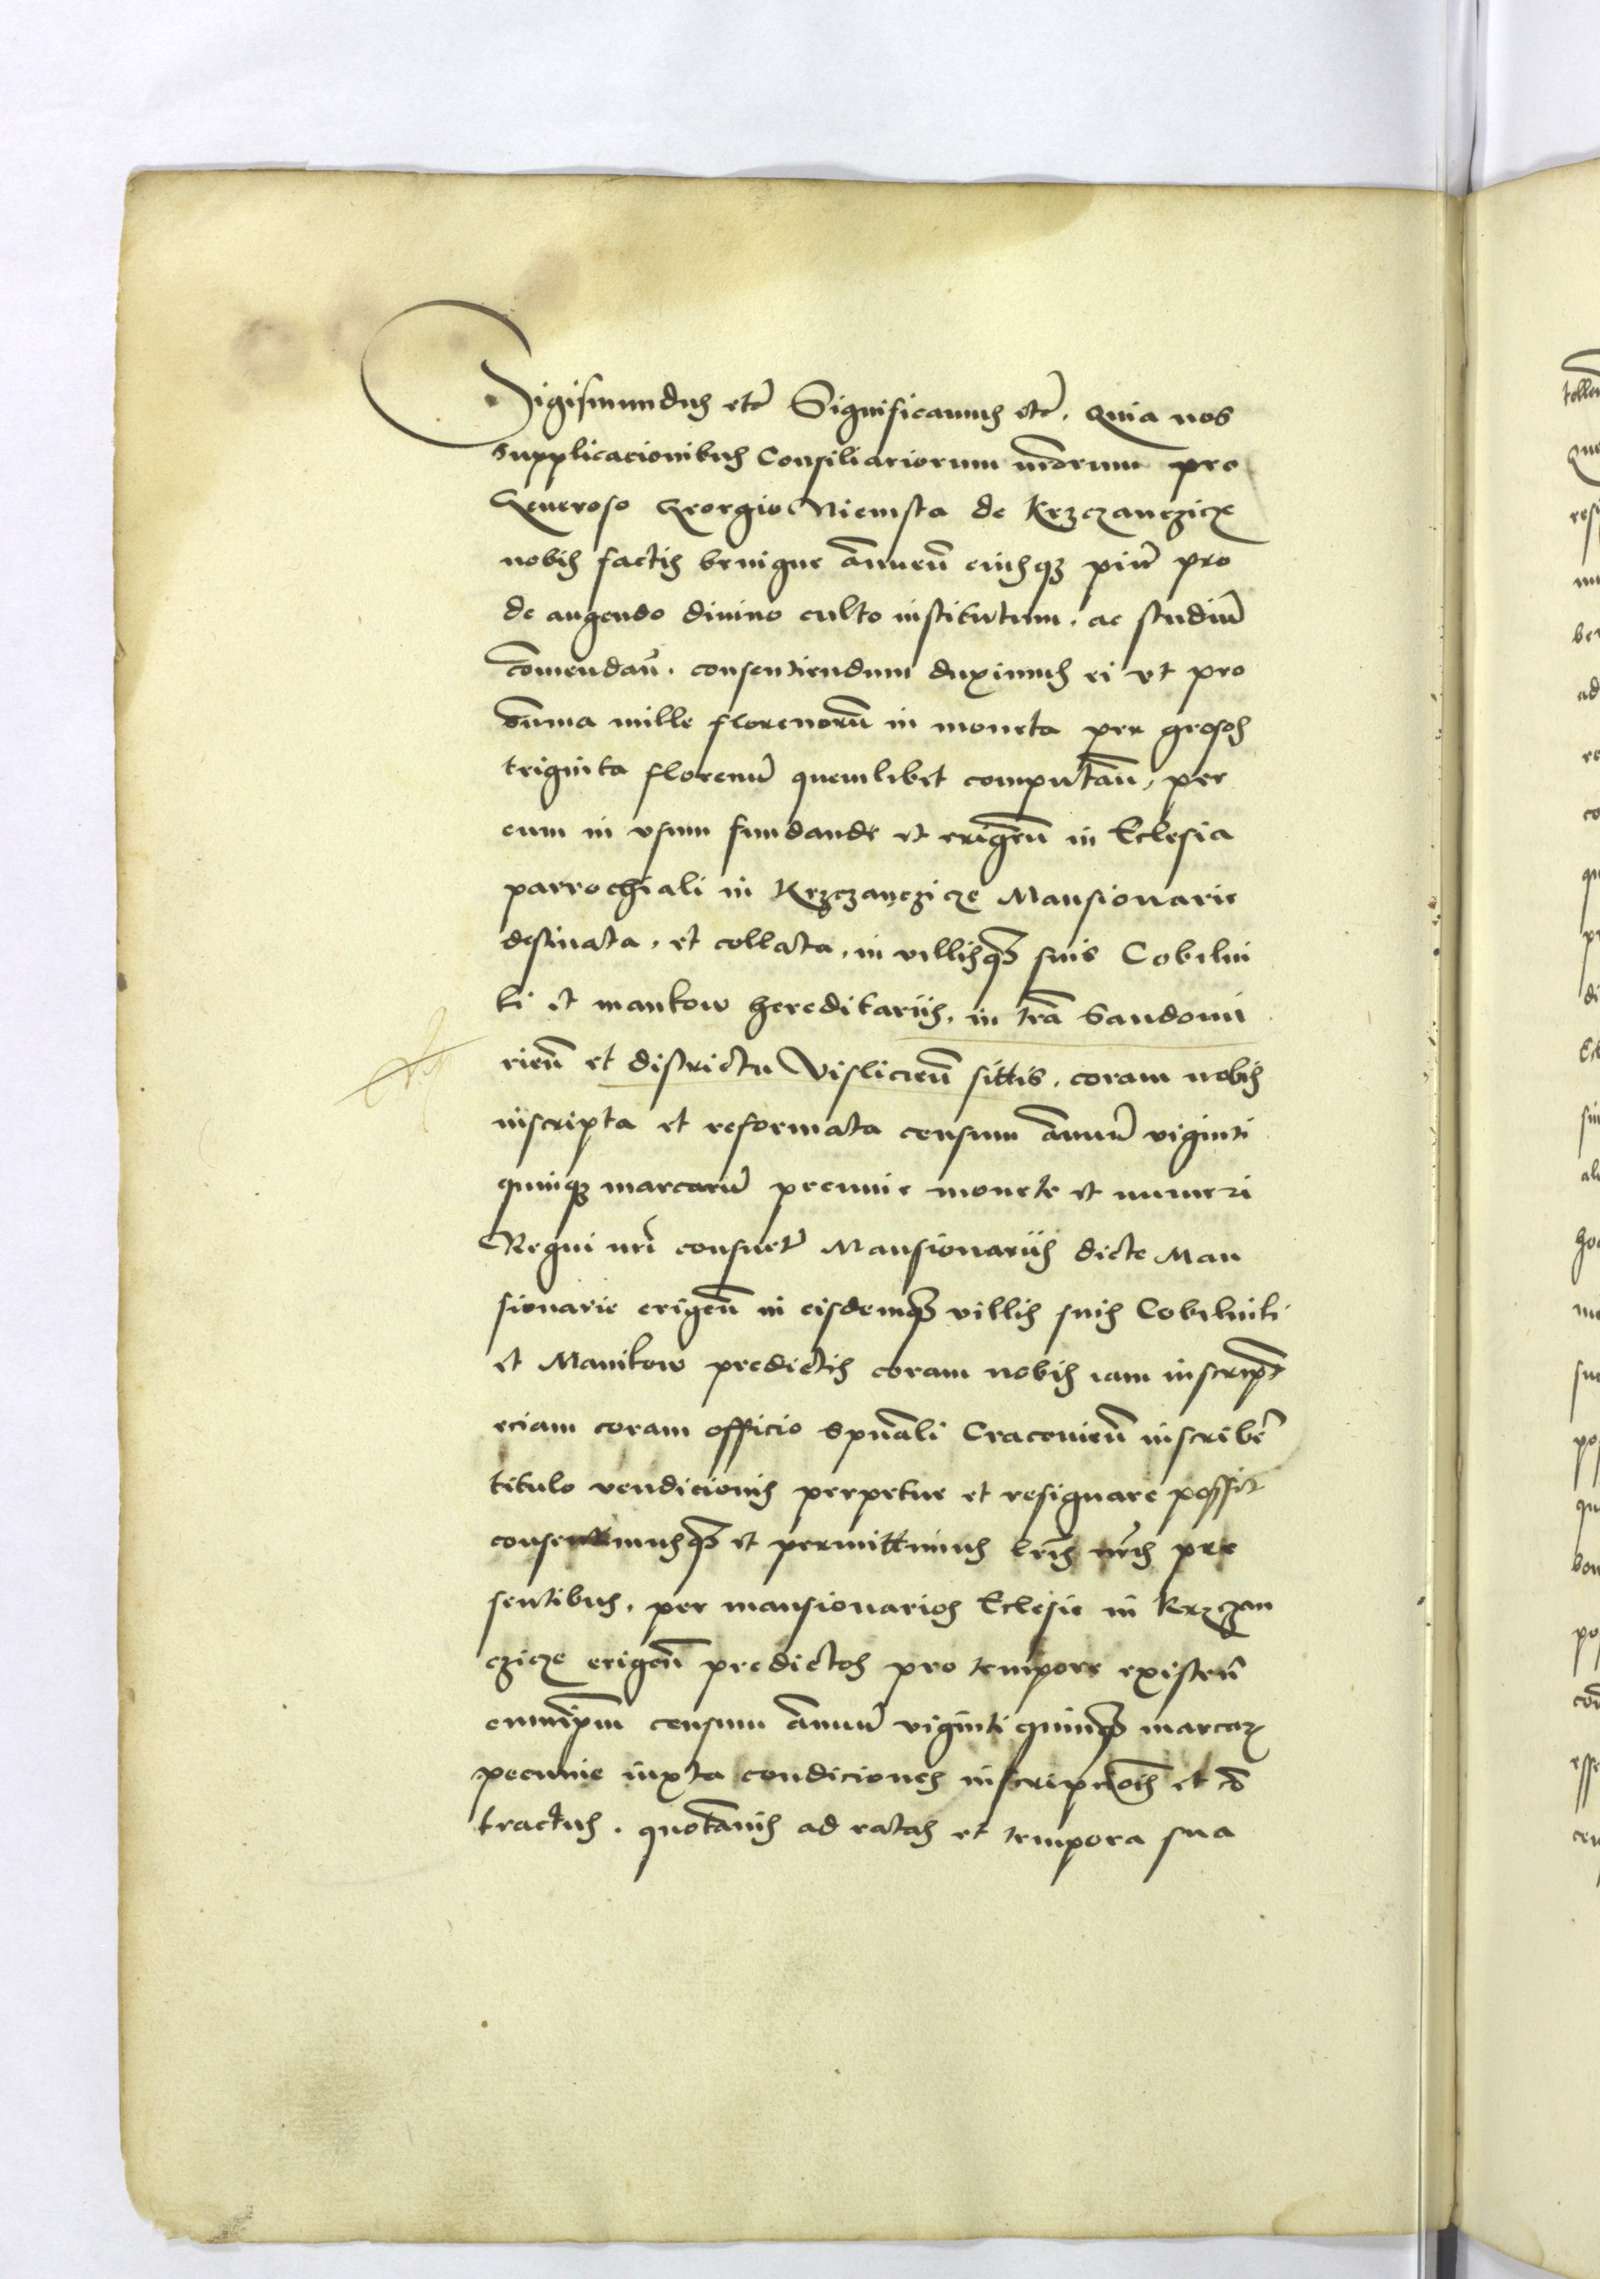 Sigismundus etc̃ Significamus etc̃. Quia nos
supplicacionibus Consiliariorum nr̃orum pro
Generoso Georgio Niemsta de Krzczanczicze
nobis factis benigne annueñ eiusqꝫ piũ pro
de augendo divino culto institutum, ac studiũ
com̃endañ. consentiendum duximus ei vt pro
sum̃a mille florenorũ in moneta per grossos
triginta florenũ quemlibet computañ, per
eum in vsum fundande et erigeñ in Eclesia
parrochiali in Krzczanczicze Mansionarie
destinata, et collata, in villisqꝫ suis Cobilni
ki et mankow hereditariis, in tr̃a Sandomi
rieñ et districtu Vislicieñ sittis, coram nobis
inscripta et reformata censum annuũ viginti
quinqꝫ marcarũ pecunie monete et numeri
Regni nr̃i consuet̃ Mansionariis dicte Man
sionarie erigeñ in eisdemqꝫ villis suis Cobilniki
et Manikow predictis coram nobis iam inscript̃
eciam coram officio spũali Cracovieñ inscriber̃
titulo vendicionis perpetue et resignare possit
consentimusqꝫ et permittimus lr̃is nr̃is pre
sentibus, per mansionarios Eclesie in Krzczan
czicze erigeñ predictos pro tempore existeñ
emi ip̃m censum annuũ viginti quinqꝫ marcaꝝ
pecunie iuxta condiciones inscripcio͠is et cõ
tractus. quotannis ad ratas et tempora sua